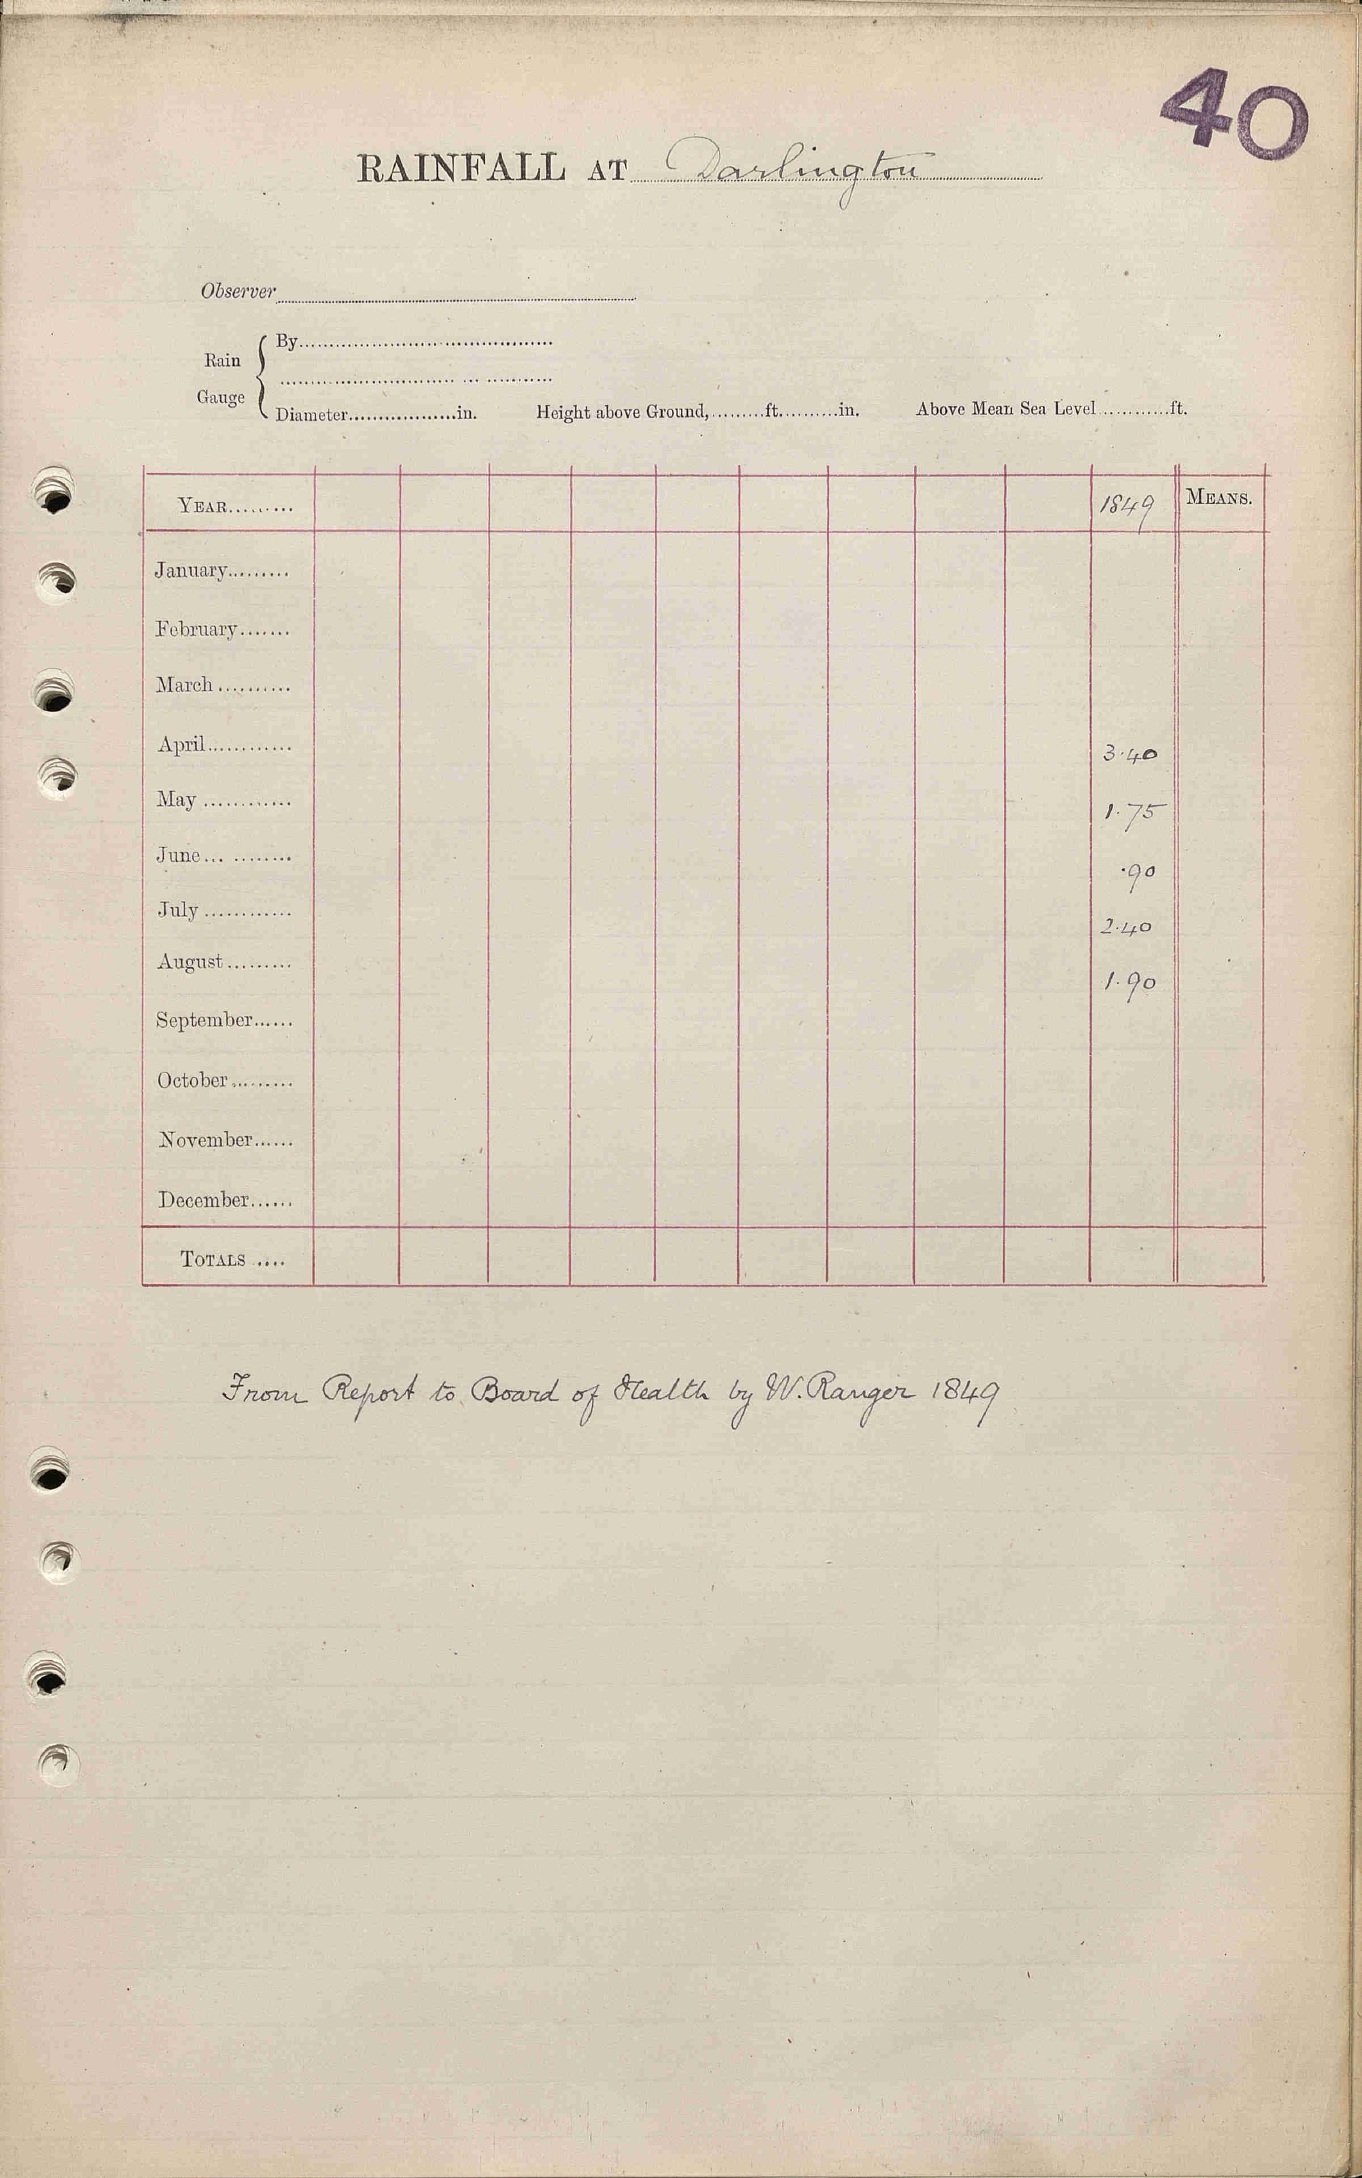 40
RAINFALL AT Darlington
Observer
Rain Gauge
By
Diameter in. Height above Ground, ft. in. Above Mean Sea Level ft.
YEAR 1849 MEANS.
January
February
March
April 3.40
May 1.75
June .90
July 2.40
August 1.90
September
October
November
December
TOTALS
From Report to Board of Health by W. Ranger 1849